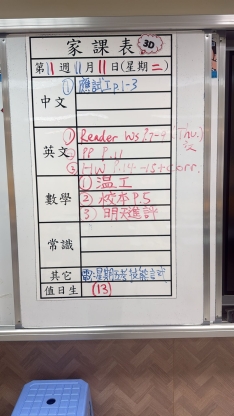 家課表 3D
第11週11月11日(星期二)
中文
① 應試工p.1-3
英文
① Reader Ws P.7- (Thu.)
② PP P.11
③ HW P.14-15+corr.
數學
① 溫工
② 校本P.5
③ 明天進評
常識
其它
值日生 (13)